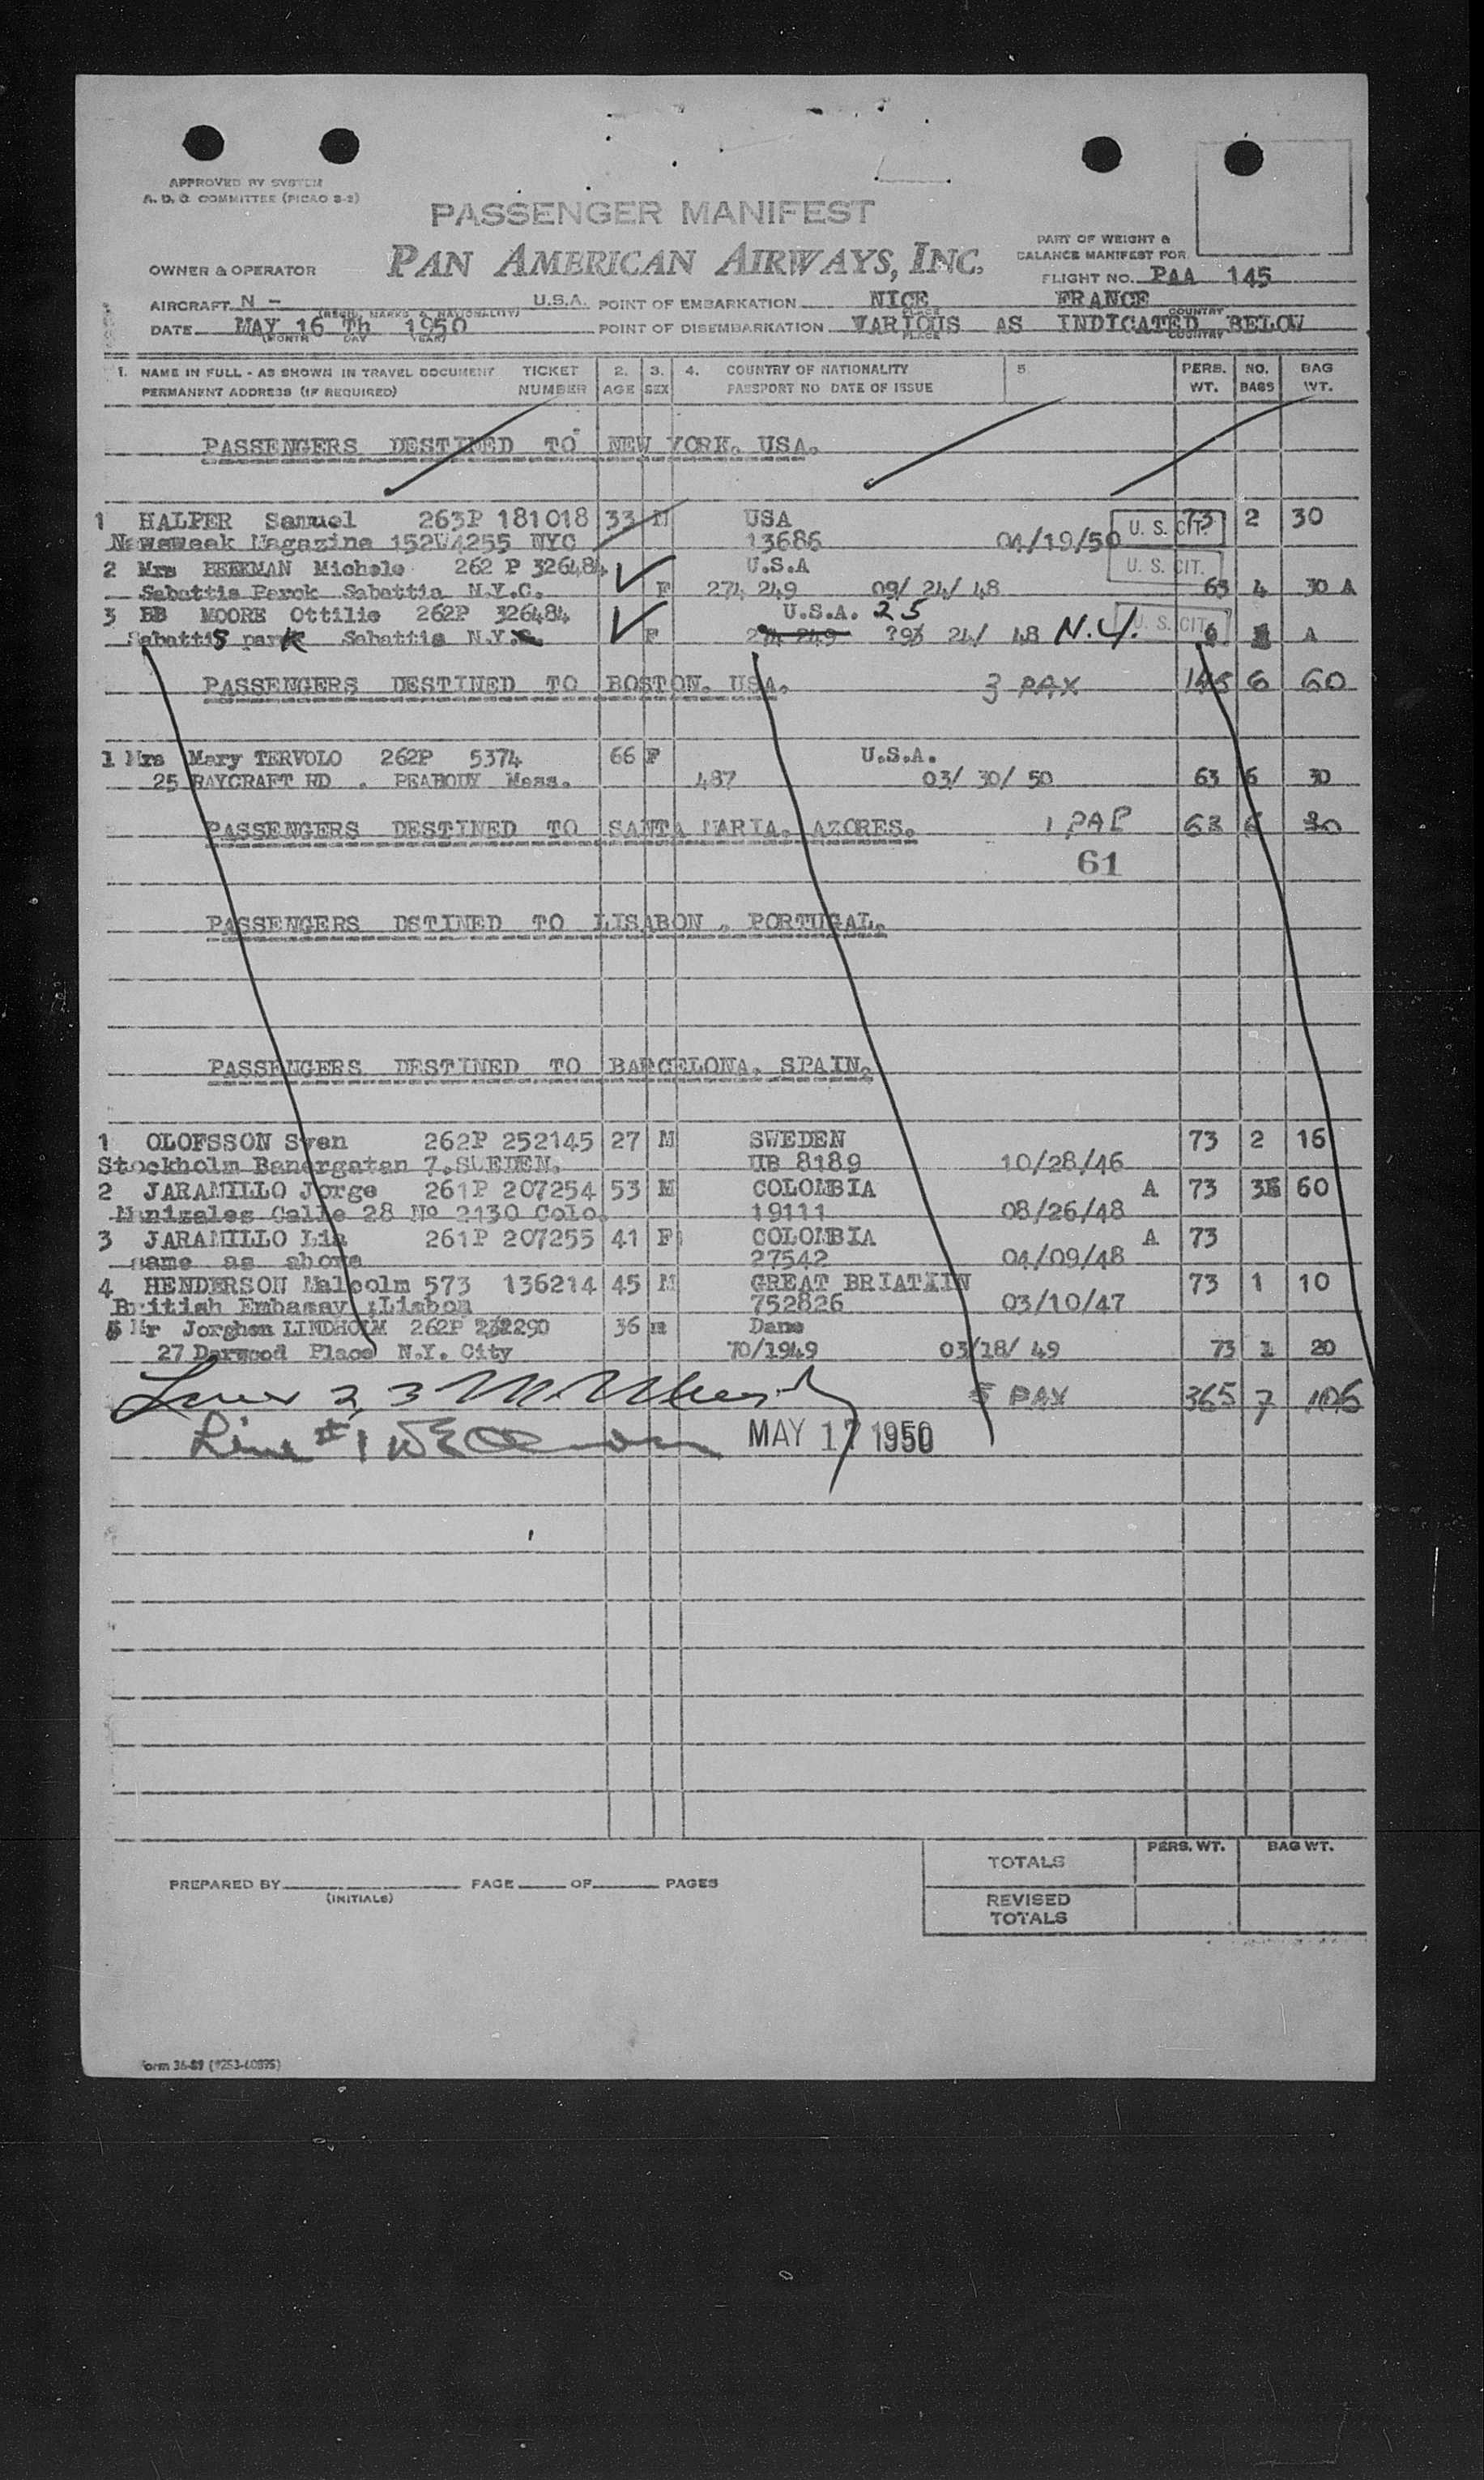 APPROVED BY SYSTEM
A. D. C. COMMITTEE (PICAO S-2)
PASSENGER MANIFEST
PAN AMERICAN AIRWAYS, INC.
PART OF WEIGHT &
BALANCE MANIFEST FOR
FLIGHT NO. PAA 145
OWNER & OPERATOR
AIRCRAFT N - U.S.A. POINT OF EMBARKATION NICE FRANCE
(REGIS. MARKS & NATIONALITY) PLACE COUNTRY
DATE MAY 16 Th 1950 POINT OF DISEMBARKATION VARIOUS AS INDICATED BELOW
(MONTH DAY YEAR) PLACE COUNTRY
1. NAME IN FULL - AS SHOWN IN TRAVEL DOCUMENT TICKET 2. 3. 4. COUNTRY OF NATIONALITY 5. PERS. NO. BAG
PERMANENT ADDRESS (IF REQUIRED) NUMBER AGE SEX PASSPORT NO DATE OF ISSUE WT. BAGS WT.
PASSENGERS DESTINED TO NEW YORK. USA.
1 HALPER Samuel 263P 181018 33 M USA 73 2 30
Newsweek Magazine 152W4255 NYC 13686 04/19/50 U. S. CIT.
2 Mrs BEEKMAN Michele 262 P 326484 U.S.A U. S. CIT.
Sabattis Perck Sabattis N.Y.C. F 274 249 09/ 24/ 48 63 4 30 A
3 BB MOORE Ottilie 262P 326484 U.S.A. 25
Sabattis park Sabattis N.Y. F 274 249 24/ 48 N.Y. U. S. CIT. 6 A
PASSENGERS DESTINED TO BOSTON. USA. 3 PAX 145 6 60
1 Mrs Mary TERVOLO 262P 5374 66 F U.S.A.
25 RAYCRAFT RD . PEABODY Mass. 487 03/ 30/ 50 63 6 30
PASSENGERS DESTINED TO SANTA MARIA. AZORES. 1 PAP 63 6 30
61
PASSENGERS DSTINED TO LISABON . PORTUGAL.
PASSENGERS DESTINED TO BARCELONA. SPAIN.
1 OLOFSSON Sven 262P 252145 27 M SWEDEN 73 2 16
Stockholm Banergatan 7.SWEDEN. UB 8189 10/28/46
2 JARAMILLO Jorge 261P 207254 53 M COLOMBIA A 73 3 60
Manizales Calle 28 Nº 2130 Colo. 19111 08/26/48
3 JARAMILLO Lia 261P 207255 41 F COLOMBIA A 73
same as above 27542 04/09/48
4 HENDERSON Malcolm 573 136214 45 M GREAT BRIATAIN 73 1 10
British Embassy ;Lisbon 752826 03/10/47
5 Mr Jorghen LINDHOLM 262P 232290 36 m Dane
27 Darwood Place N.Y. City 70/1949 03/18/ 49 73 1 20
2, 3 5 PAX 365 7 106
Line #1 MAY 17 1950
TOTALS PERS. WT. BAG WT.
PREPARED BY (INITIALS) PAGE OF PAGES
REVISED
TOTALS
Form 36-89 (*253-60895)